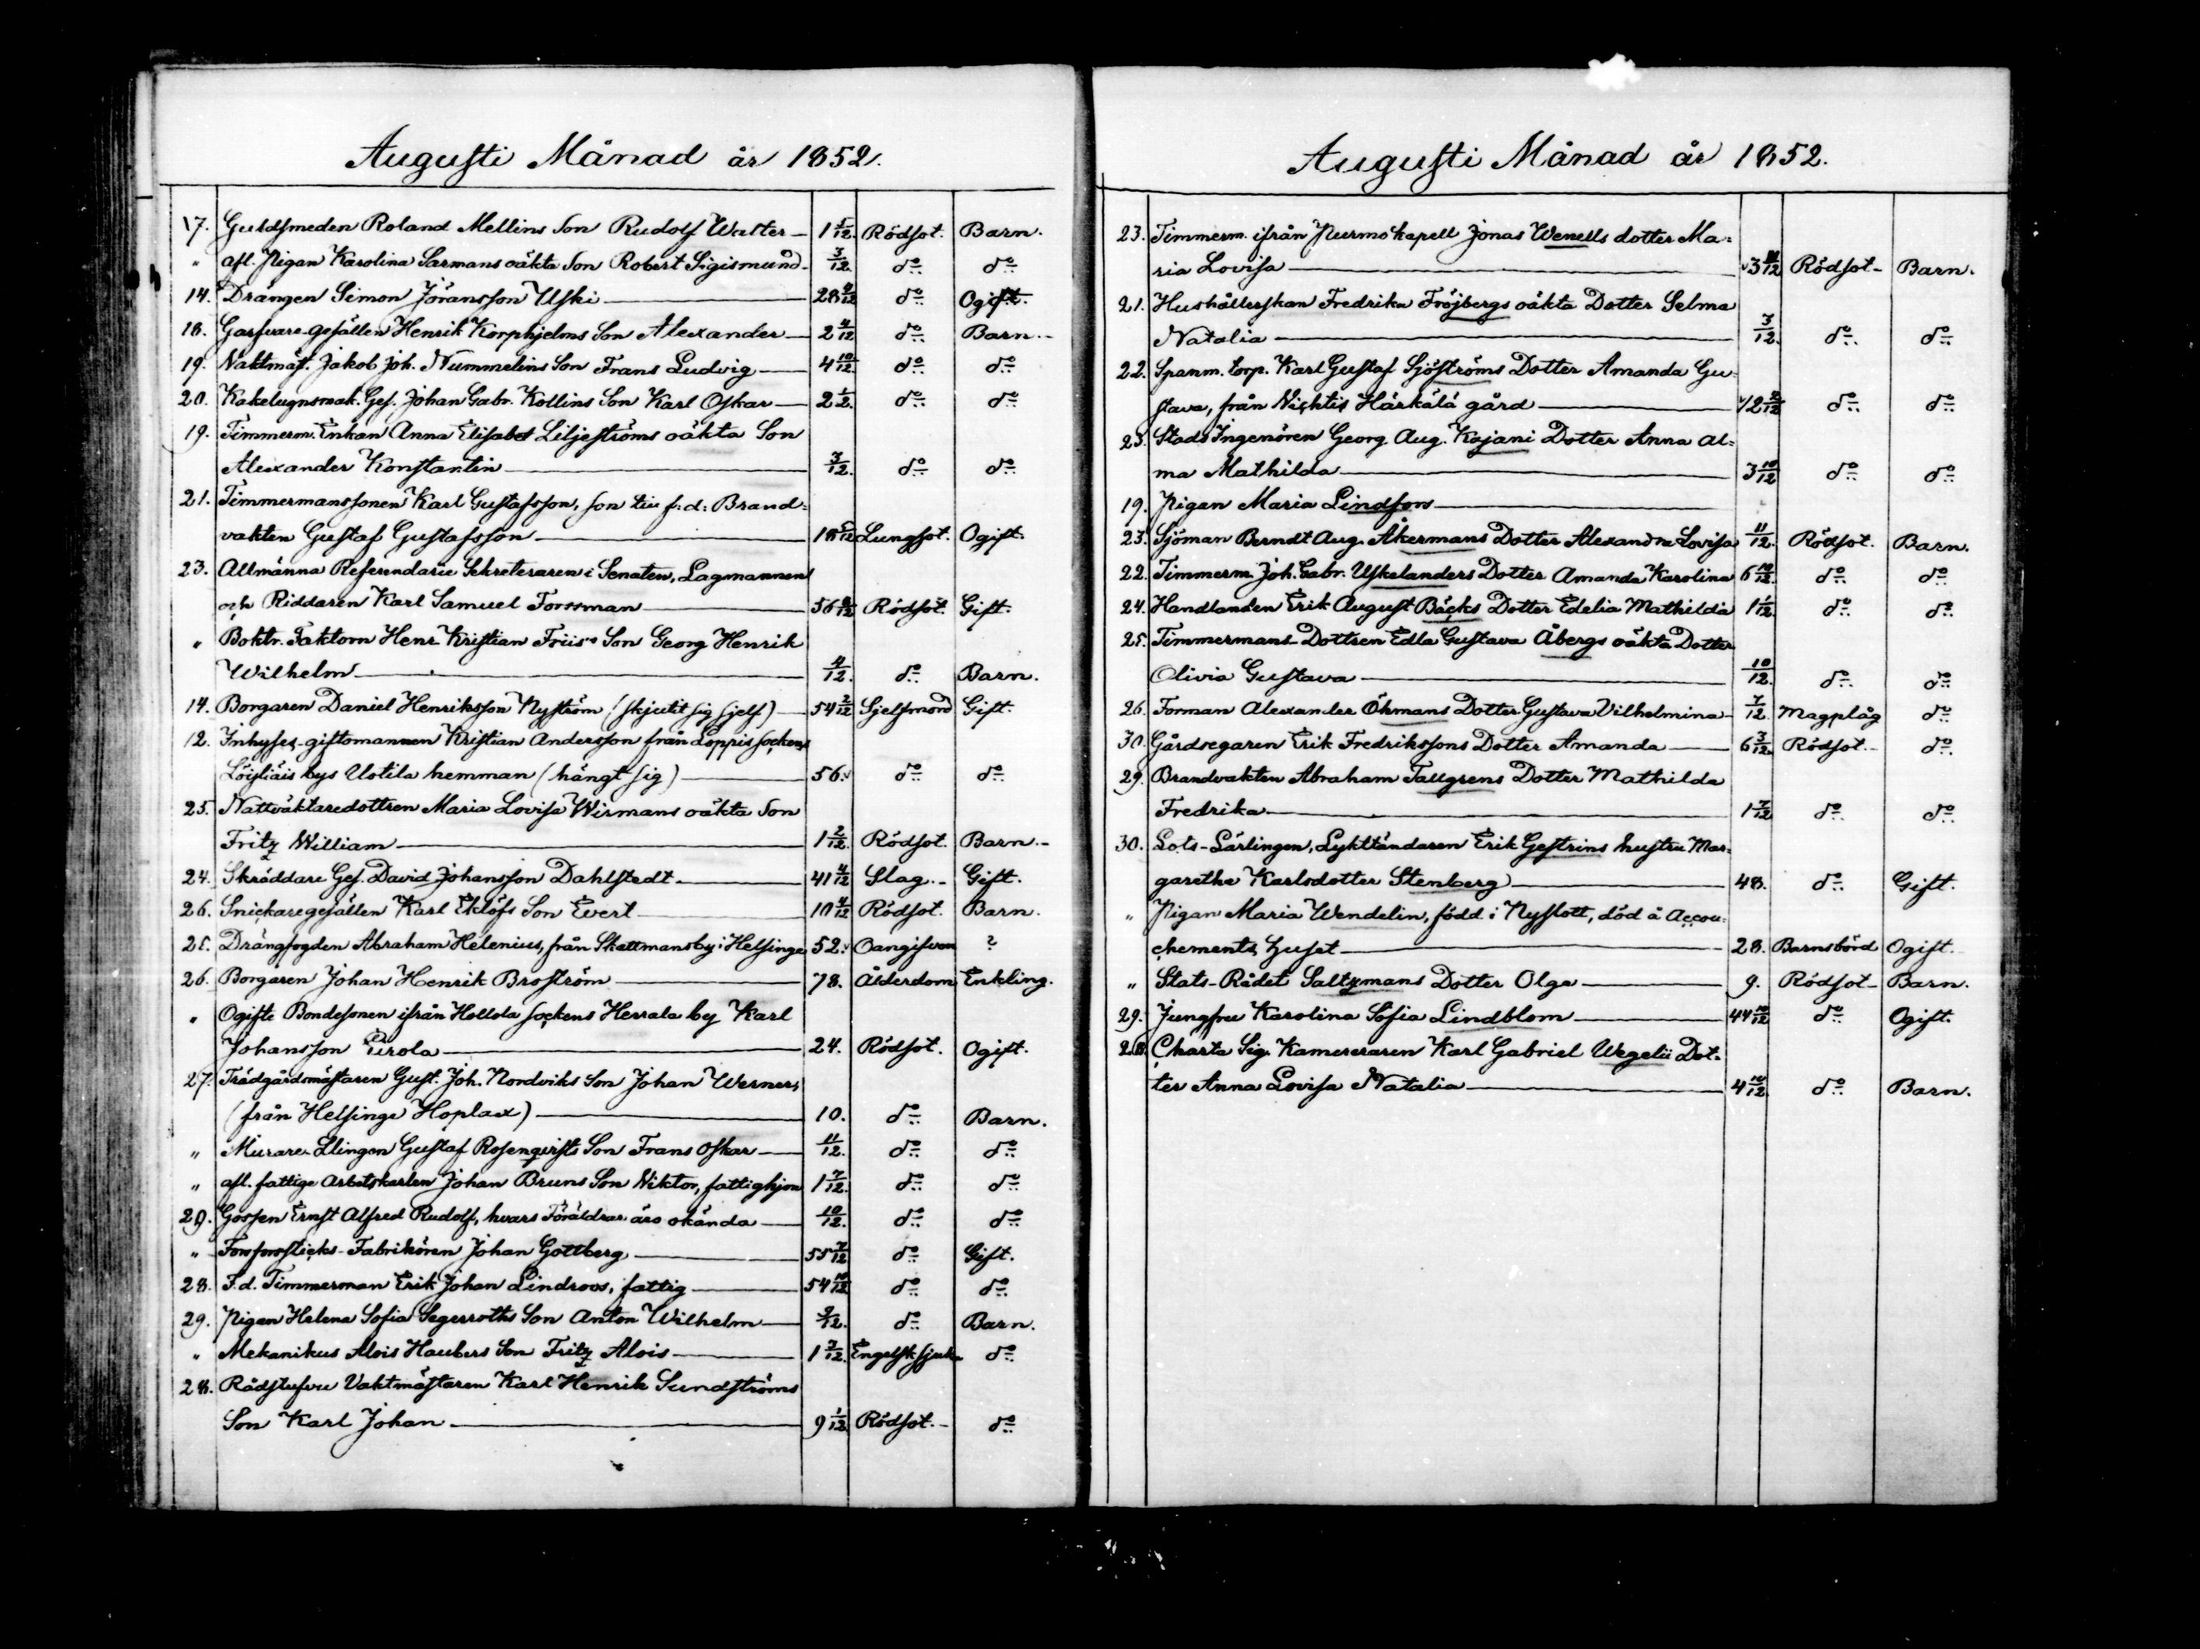 Augusti Månad år 1852.
17. Guldsmeden Roland Mellins Son Rudolf Walter — 1 5/12. Rödsot. Barn.
" afl. Pigan Karolina Sarmans oäkta Son Robert Sigismund — 3/12. do do
14. Drängen Simon Jöransson Uski — 28 9/12 do Ogift.
18. Garfvare-gesällen Henrik Korphjelms Son Alexander — 2 4/12 do Barn.
19. Vaktmäst. Jakob Joh. Nummelins Son Frans Ludvig — 4 10/12 do do
20. Kakelugnsmak. Ges. Johan Gabr. Kollins Son Karl Oskar — 2 1/2. do do
19. Timmerm. Enkan Anna Elisabet Liljeströms oäkta Son
Alexander Konstantin — 3/12. do do
21. Timmermanssonen Karl Gustafsson, son till f:d: Brand=
vakten Gustaf Gustafsson — 18 5/12 Lungsot. Ogift.
23. Allmänna Referendarie Sekreteraren i Senaten, Lagmannen
och Riddaren Karl Samuel Forssman — 56 8/12 Rödsot. Gift.
" Boktr. Faktorn Henr. Kristian Friis's Son Georg Henrik
Wilhelm — 4/12. do Barn.
14. Borgaren Daniel Henriksson Nyström (skjutit sig sjelf) — 54 2/12 Sjelfmord Gift.
12. Inhyses-giftomannen Kristian Andersson från Loppis sockens
Löyliäis bys Uotila hemman (hängt sig) — 56. do do
25. Nattväktaredottren Maria Lovisa Wirmans oäkta Son
Fritz William — 1 2/12. Rödsot. Barn.
24. Skräddare Ges. David Johansson Dahlstedt — 41 4/12 Slag. Gift.
26. Snickaregesällen Karl Eklöfs Son Evert — 10 4/12 Rödsot. Barn.
25. Drängfogden Abraham Helenius, från Skattmansby i Helsinge 52. Oangifven ?
26. Borgaren Johan Henrik Broström — 78. Ålderdom Enkling.
" Ogifte Bondesonen ifrån Hollola sockens Herrala by Karl
Johansson Pirola — 24. Rödsot. Ogift.
27. Trädgårdsmästaren Gust. Joh. Nordviks Son Johan Werner,
(från Helsinge Hoplax) — 10. do Barn.
" Murare-Llingen Gustaf Rosenqvists Son Frans Oskar — 11/12. do do
" afl. fattige Arbetskarlen Johan Bruns Son Viktor, fattighjon 1 7/12. do do
29. Gossen Ernst Alfred Rudolf, hvars Föräldrar äro okända — 10/12. do do
" Forforsticks-Fabrikören Johan Gottberg — 55 7/12 do Gift.
28. F.d. Timmerman Erik Johan Lindroos, fattig — 54 10/12 do do
29. Pigan Helena Sofia Segerroths Son Anton Wilhelm — 9/12. do Barn.
" Mekanikus Alois Haubers Son Fritz Alois — 1 7/12. Engelsk sjuka do
28. Rådstufvu Vaktmästaren Karl Henrik Sundströms
Son Karl Johan — 9 1/12 Rödsot. do
Augusti Månad år 1852.
23. Timmerm. ifrån Purmo kapell Jonas Wenells dotter Ma=
ria Lovisa — 3 11/12 Rödsot Barn.
21. Hushållerskan Fredrika Fröjbergs oäkta Dotter Selma
Natalia — 3/12. do do
22. Spanm. torp. Karl Gustaf Sjöströms Dotter Amanda Gu=
stava, från Vichtis Härkälä gård — 2 2/12 do do
23. Stads Ingenören Georg Aug. Kajani Dotter Anna Al=
ma Mathilda — 3 10/12 do do
19. Pigan Maria Lindfors —
23. Sjöman Berndt Aug. Åkermans Dotter Alexandra Lovisa 11/12. Rödsot. Barn.
22. Timmerm. Joh. Gabr. Uskelanders Dotter Amanda Karolina 6 10/12 do do
24. Handlanden Erik August Bäcks Dotter Edelia Mathilda 1 1/12 do do
25. Timmermans-Dottren Edla Gustava Åbergs oäkta Dotter
Olivia Gustava — 10/12. do do
26. Forman Alexander Öhmans Dotter Gustava Vilhelmina 7/12. Magplåg do
30. Gårdsegaren Erik Fredrikssons Dotter Amanda — 6 3/12. Rödsot. do
29. Brandvakten Abraham Tallgrens Dotter Mathilda
Fredrika — 1 7/12 do do
30. Lots-Lärlingen, Lykttändaren Erik Gestrins hustru Mar=
garetha Karlsdotter Stenberg — 48. do Gift.
" Pigan Maria Wendelin, född i Nyslott, död å Accou=
chements huset — 28. Barnsbörd Ogift.
" Stats-Rådet Saltzmans Dotter Olga — 9. Rödsot Barn.
29. Jungfru Karolina Sofia Lindblom — 44 10/12 do Ogift.
28. Charta Sig. Kamereraren Karl Gabriel Wegelii Dot.
ter Anna Lovisa Natalia — 4 10/12 do Barn.